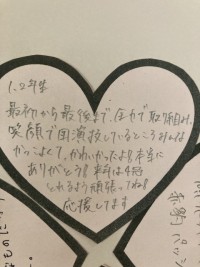 1、2年生
最初から最後まで、全力で取り組み、
笑顔で
演技しているところみんな
かっこよくて、かわいかったよ!本当に
ありがとう!
は4冠
とれるよう頑張ってね!
応援してます